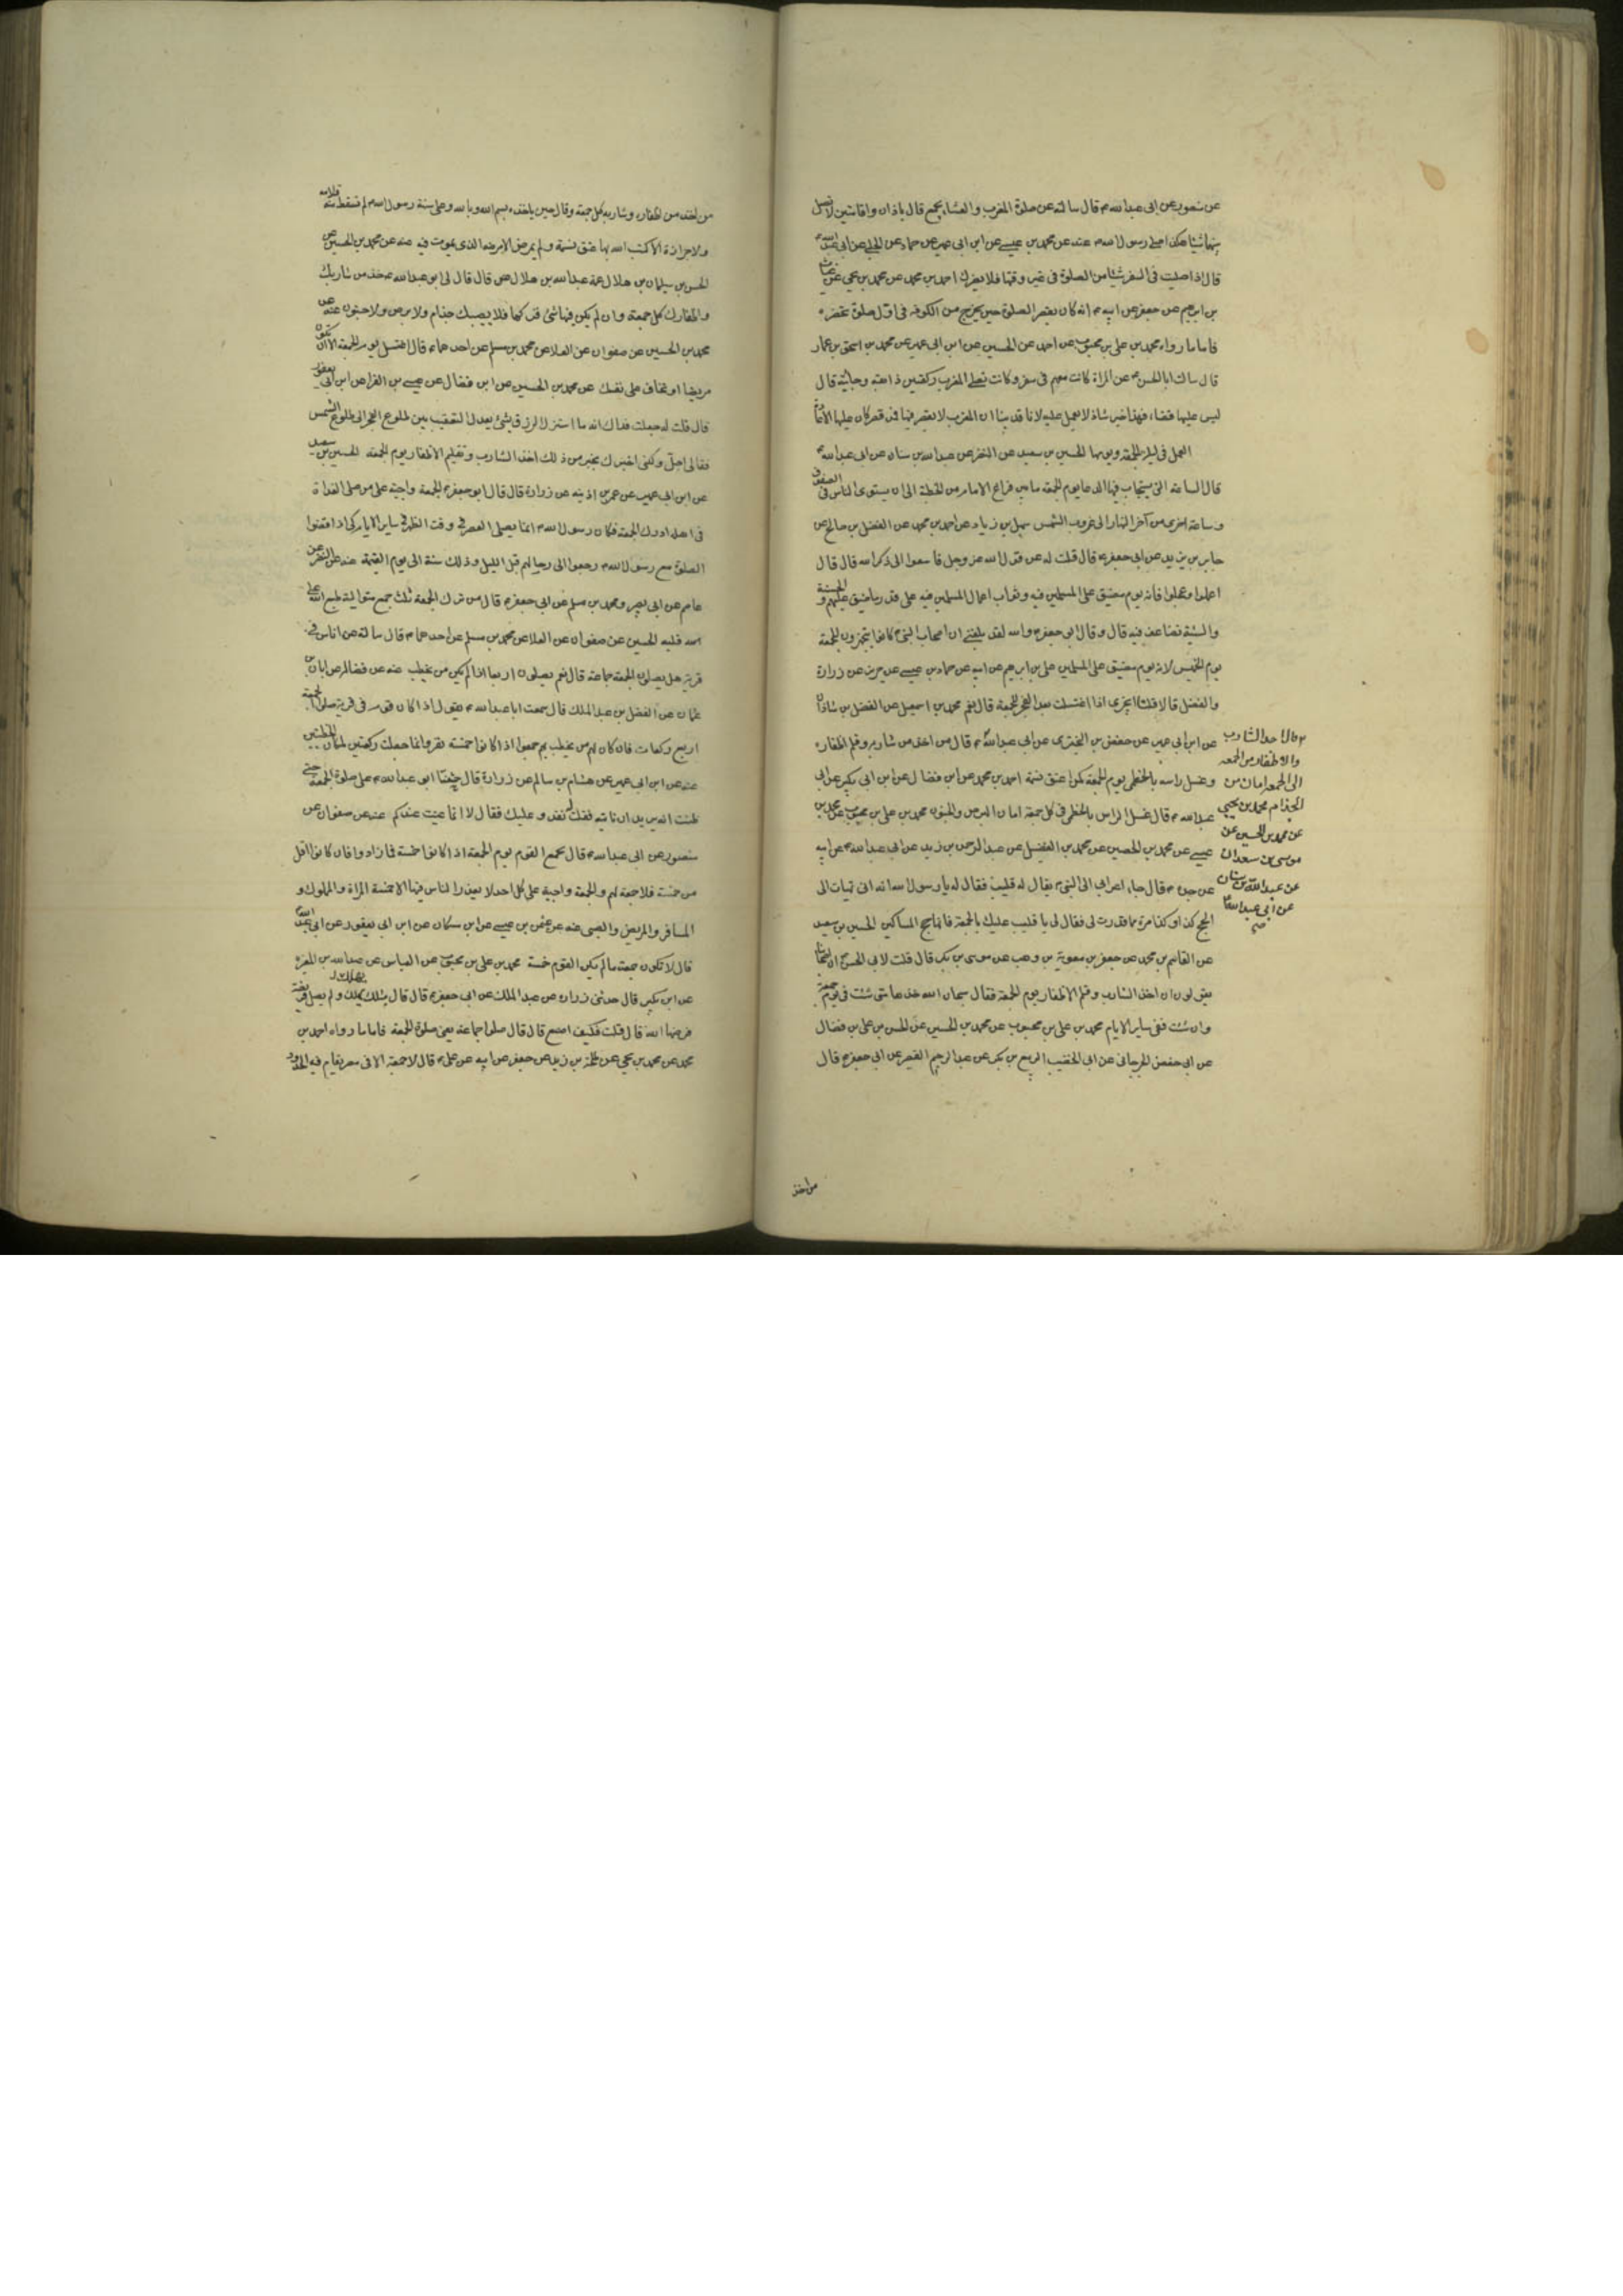 عن منصور عن ابى عبد الله ع قال سالته عن صلوة المغرب والعشاء بجمع قال باذان واقامتين لا تصل
بينهما شيئا هكذا صلى رسول الله ص عنه عن محمد بن عيسى عن ابن ابى عمير عن حماد عن الحلبى عن ابى عبد الله ع
قال اذا صليت فى السفر شيئا من الصلوة فى غير وقتها فلا يضرك احمد بن محمد عن محمد بن يحيى عن غياث
بن ابرهيم عن جعفر عن ابيه ع انه كان يقصر الصلوة حين يخرج من الكوفه فى اول صلوة تحضره
فاما ما رواه محمد بن على بن محبوب عن احمد عن الحسين عن ابن ابى عمير عن محمد بن اسحق بن عمار
قال سالت ابا الحسن ع عن امراة كانت معهم فى سفر وكانت تصلى المغرب ركعتين ذاهبة وجائية قال
ليس عليها قضاء فهذا خبر شاذ لا نعمل عليه لانا قد بينا ان المغرب لا يقصر فيها فمن قصر كان عليه الاعادة
العمل فى ليلة الجمعة ويومها الحسين بن سعيد عن النضر عن عبد الله بن سنان عن ابى عبد الله ع
قال الساعة التى يستجاب فيها الدعا يوم الجمعة ما بين فراغ الامام من الخطبة الى ان يستوى الناس فى الصفوف
وساعة اخرى من آخر النهار الى غروب الشمس سهل بن زياد عن احمد بن محمد عن المفضل بن صالح عن
جابر بن يزيد عن ابى جعفر ع قال قلت له عن قول الله عز وجل فاسعوا الى ذكر الله قال قال
اعملوا وعجلوا فانه يوم مضيق على المسلمين فيه وثواب اعمال المسلمين فيه على قدر ما ضيق عليهم والحسنة
والسيئة تضاعف فيه قال وقال ابو جعفر ع والله لقد بلغنى ان اصحاب النبى ص كانوا يتجهزون للجمعة
يوم الخميس لانه يوم مضيق على المسلمين على بن ابرهيم عن ابيه عن حماد بن عيسى عن حريز عن زرارة
والفضل قالا قلنا ايجزى اذا اغتسلت بعد الفجر للجمعة قال نعم محمد بن اسمعيل عن الفضل بن شاذان
عن ابن ابى عمير عن حفص بن البخترى عن ابى عبد الله ع قال من اخذ من شاربه وقلم اظفاره
وغسل راسه بالخطمى يوم الجمعة كمن اعتق نسمة احمد بن محمد عن ابن فضال عن ابن بكير عن ابى
عبد الله ع قال غسل الراس بالخطمى فى كل جمعة امان من البرص والجنون محمد بن على بن محبوب عن محمد بن
عيسى عن محمد بن الحصين عن محمد بن الفضيل عن عبد الرحمن بن زيد عن ابى عبد الله ع عن ابيه
عن جده ع قال جاء اعرابى الى النبى ص يقال له قليب فقال له يا رسول الله انى تهيات الى
الحج كذا وكذا مرة فما قدر لى فقال لى يا قليب عليك بالجمعة فانها حج المساكين الحسين بن سعيد
عن القاسم بن محمد عن جعفر بن معوية بن وهب عن موسى بن بكر قال قلت لابى الحسن ع ان اصحابنا
يقولون ان اخذ الشارب وقلم الاظفار يوم الجمعة فقال سبحان الله خذها متى شئت فى يوم جمعة
وان شئت ففى ساير الايام محمد بن على بن محبوب عن محمد بن الحسين عن الحسن بن على بن فضال
عن ابى حفص الجرجانى عن ابى الخضيب الربيع بن بكر عن عبد الرحيم القصير عن ابى جعفر ع قال
قال اخذ الشارب
والاظفار من الجمعه
الى الجمعه امان من
الجذام محمد بن يحيى
عن محمد بن الحسين عن
موسى بن سعدان
عن عبد الله بن سنان
عن ابى عبد الله ع
صح
من اخذ
من اخذ من اظفاره وشاربه كل جمعة وقال حين ياخذه بسم الله وبالله وعلى سنة رسول الله ص لم تسقط منه قلامة
ولا جزازة الا كتب الله بها عتق نسمة ولم يمرض الا مرضه الذى يموت فيه عنه عن محمد بن الحسين عن
الحسن بن سليمان بن هلال عمه عبد الله بن هلال قال قال لى ابو عبد الله ع خذ من شاربك
واظفارك كل جمعة وان لم يكن فيها شئ فحكها فلا يصيبك جذام ولا برص ولا جنون عنه عن
محمد بن الحسين عن صفوان عن العلا عن محمد بن مسلم عن احدهما ع قال اغتسل يوم الجمعة الا ان تكون
مريضا او تخاف على نفسك عن محمد بن الحسين عن ابن فضال عن عيسى بن الفرا عن ابن ابى يعفور
قال قلت له جعلت فداك انه ما استنزل الرزق بشئ يعدل التعقيب بين طلوع الفجر الى طلوع الشمس
فقال لى اجل ولكنى اخبرك بخير من ذلك اخذ الشارب وتقليم الاظفار يوم الجمعة الحسين بن سعيد
عن ابن ابى عمير عن عمر بن اذينه عن زرارة قال قال ابو جعفر ع الجمعة واجبة على من صلى الغداة
فى اهله ادرك الجمعة فكان رسول الله ص انما يصلى العصر فى وقت الظهر فى ساير الايام كى اذا قضوا
الصلوة مع رسول الله ص رجعوا الى رحالهم قبل الليل وذلك سنة الى يوم القيمة عنه عن النضر عن
عاصم عن ابى بصير ومحمد بن مسلم عن ابى جعفر ع قال من ترك الجمعة ثلث جمع متوالية طبع الله على
قلبه الحسين عن صفوان عن العلا عن محمد بن مسلم عن احدهما ع قال سالته عن اناس فى
قرية هل يصلون الجمعة جماعة قال نعم يصلون اربعا اذا لم يكن من يخطب عنه عن فضالة عن ابان بن
عثمان عن الفضل بن عبد الملك قال سمعت ابا عبد الله ع يقول اذا كان قوم فى قرية صلوا الجمعة
اربع ركعات فان كان لهم من يخطب بهم جمعوا اذا كانوا خمسة نفر وانما جعلت ركعتين لمكان الخطبتين
عنه عن ابن ابى عمير عن هشام بن سالم عن زرارة قال حثنا ابو عبد الله ع على صلوة الجمعة حتى
ظننت انه يريد ان ناتيه فقلت له نغدو عليك فقال لا انما عنيت عندكم عنه عن صفوان عن
منصور عن ابى عبد الله ع قال يجمع القوم يوم الجمعة اذا كانوا خمسة فما زادوا فان كانوا اقل
من خمسة فلا جمعة لهم والجمعة واجبة على كل احد لا يعذر الناس فيها الا خمسة المراة والمملوك و
المسافر والمريض والصبى عنه عن عثمن بن عيسى عن ابن مسكان عن ابن ابى يعفور عن ابى عبد الله ع
قال لا تكون جمعة ما لم يكن القوم خمسة محمد بن على بن محبوب عن العباس عن عبد الله بن المغيره
عن ابن بكير قال حدثنى زراره عن عبد الملك عن ابى جعفر ع قال قال مثلك يهلك ولم يصل فريضة
فرضها الله قال قلت فكيف اصنع قال قال صلوا جماعة يعنى صلوة الجمعة فاما ما رواه احمد بن
محمد عن محمد بن يحيى عن طلحة بن زيد عن جعفر عن ابيه عن على ع قال لا جمعة الا فى مصر يقام فيه الحدود